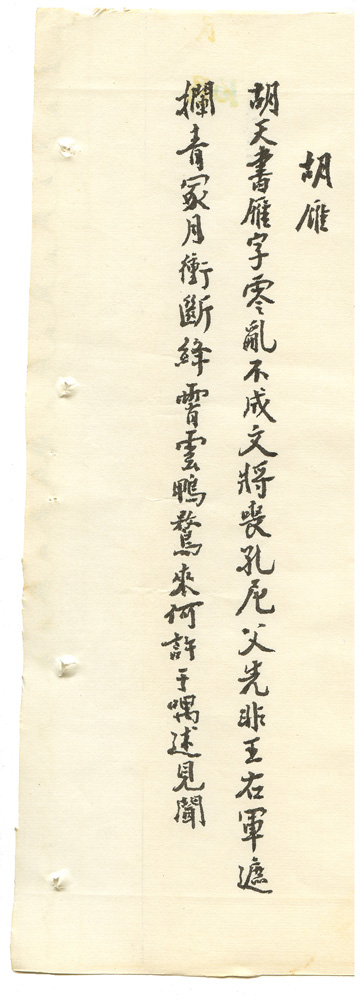 胡雁
胡天書雁字零亂不成文將喪孔尼父先非王右軍遮
攔青冢月衝斷絳霄雲鴨鶩來何許于喁述見聞